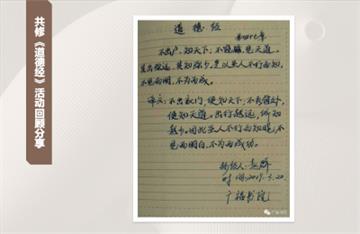 共修《道德经》活动回顾分享
道德经
第四十七章
不出户，知天下；不窥牖，见天道。
其出弥远，其知弥少。是以圣人不行而知，
不见而明，不为而成。
译文：不出家门，便知天下；不看窗外，
便知天道。出行越远，所知
越少。因此圣人不行而知晓，不
见而明白，不为而成功。
抄经人：
时间：2019.3.20
广福书院